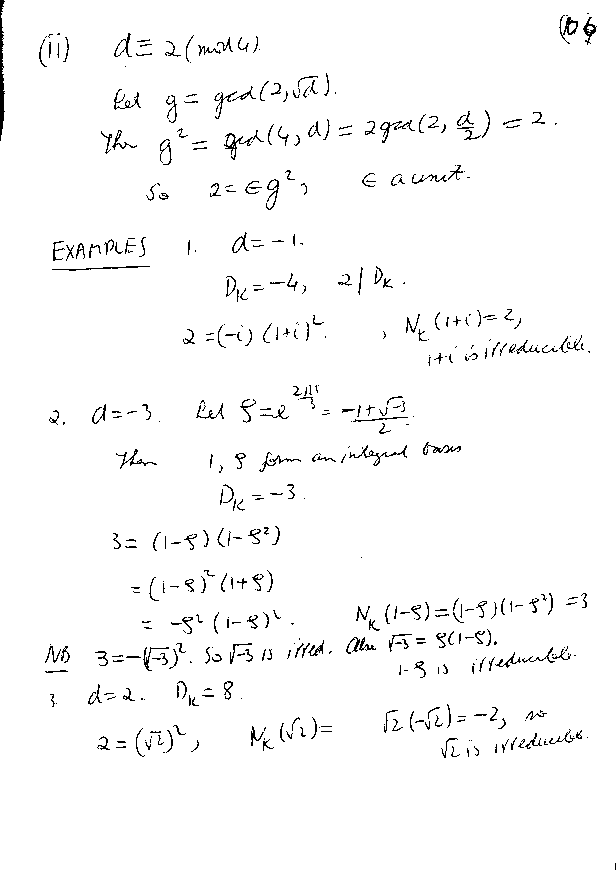 106
(ii) d ≡ 2 (mod 4).
Let g = gcd(2, √d).
Then g² = gcd(4, d) = 2gcd(2, d/2) = 2.
So 2 = ∈g², ∈ a unit.
EXAMPLES 1. d = -1.
D_K = -4, 2 | D_K.
2 = (-i) (1+i)². , N_K (1+i) = 2,
1+i is irreducible.
2. d = -3. Let ρ = e^{2πi/3} = (-1+√-3)/2.
Then 1, ρ form an integral basis
D_K = -3.
3 = (1-ρ) (1-ρ²)
= (1-ρ)² (1+ρ)
= -ρ² (1-ρ)². N_K (1-ρ) = (1-ρ)(1-ρ²) = 3
NB 3 = -(√-3)². So √-3 is irred. Also √-3 = ρ(1-ρ).
1-ρ is irreducible.
3. d = 2. D_K = 8.
2 = (√2)², N_K (√2) = √2 (-√2) = -2, so
√2 is irreducible.